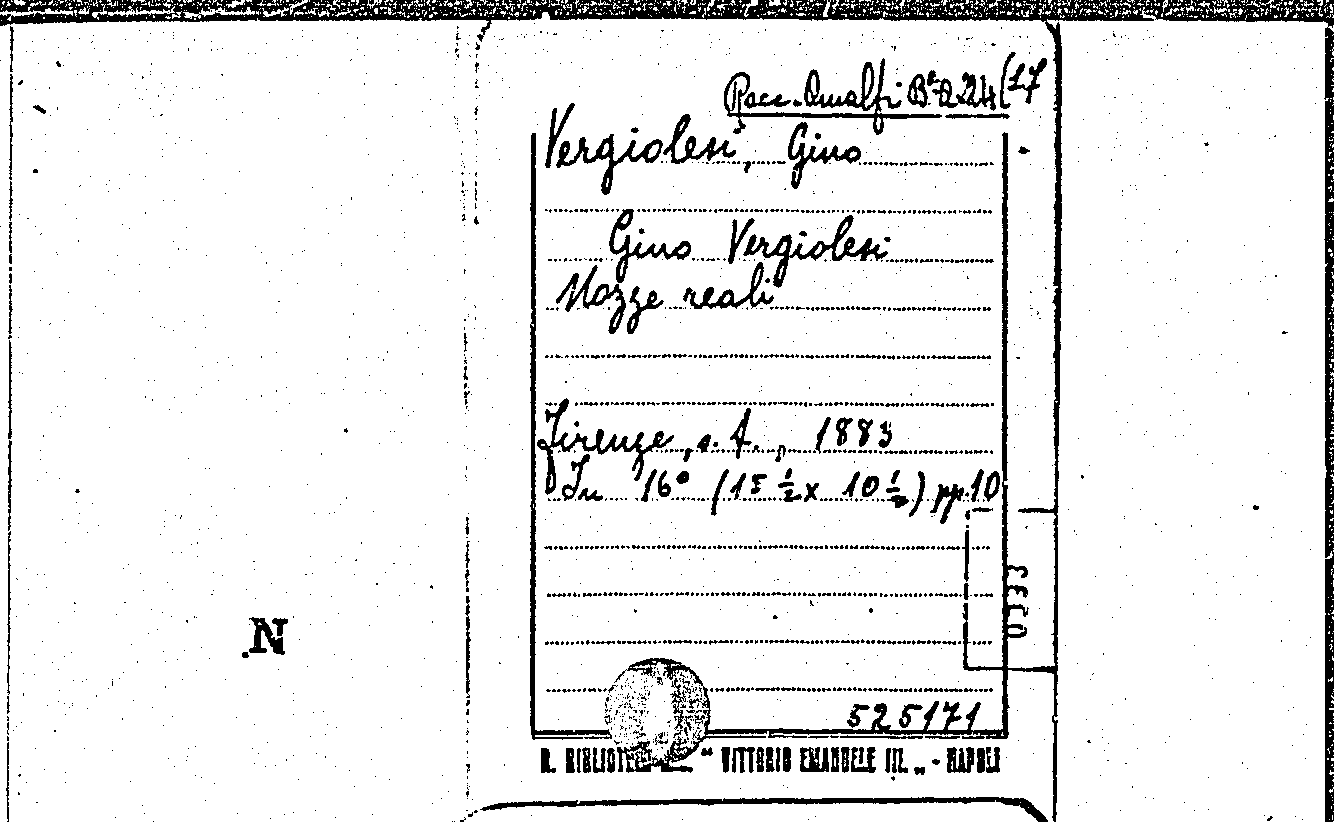 Racc. Amalfi Bª 224 (17
Vergiolesi, Gino
Gino Vergiolesi
Nozze reali
Firenze, s. t., 1883
In 16° (15 ½ x 10 ½) pp. 10
0333
N
525171
R. BIBLIOTECA " VITTORIO EMANUELE III. „ - NAPOLI